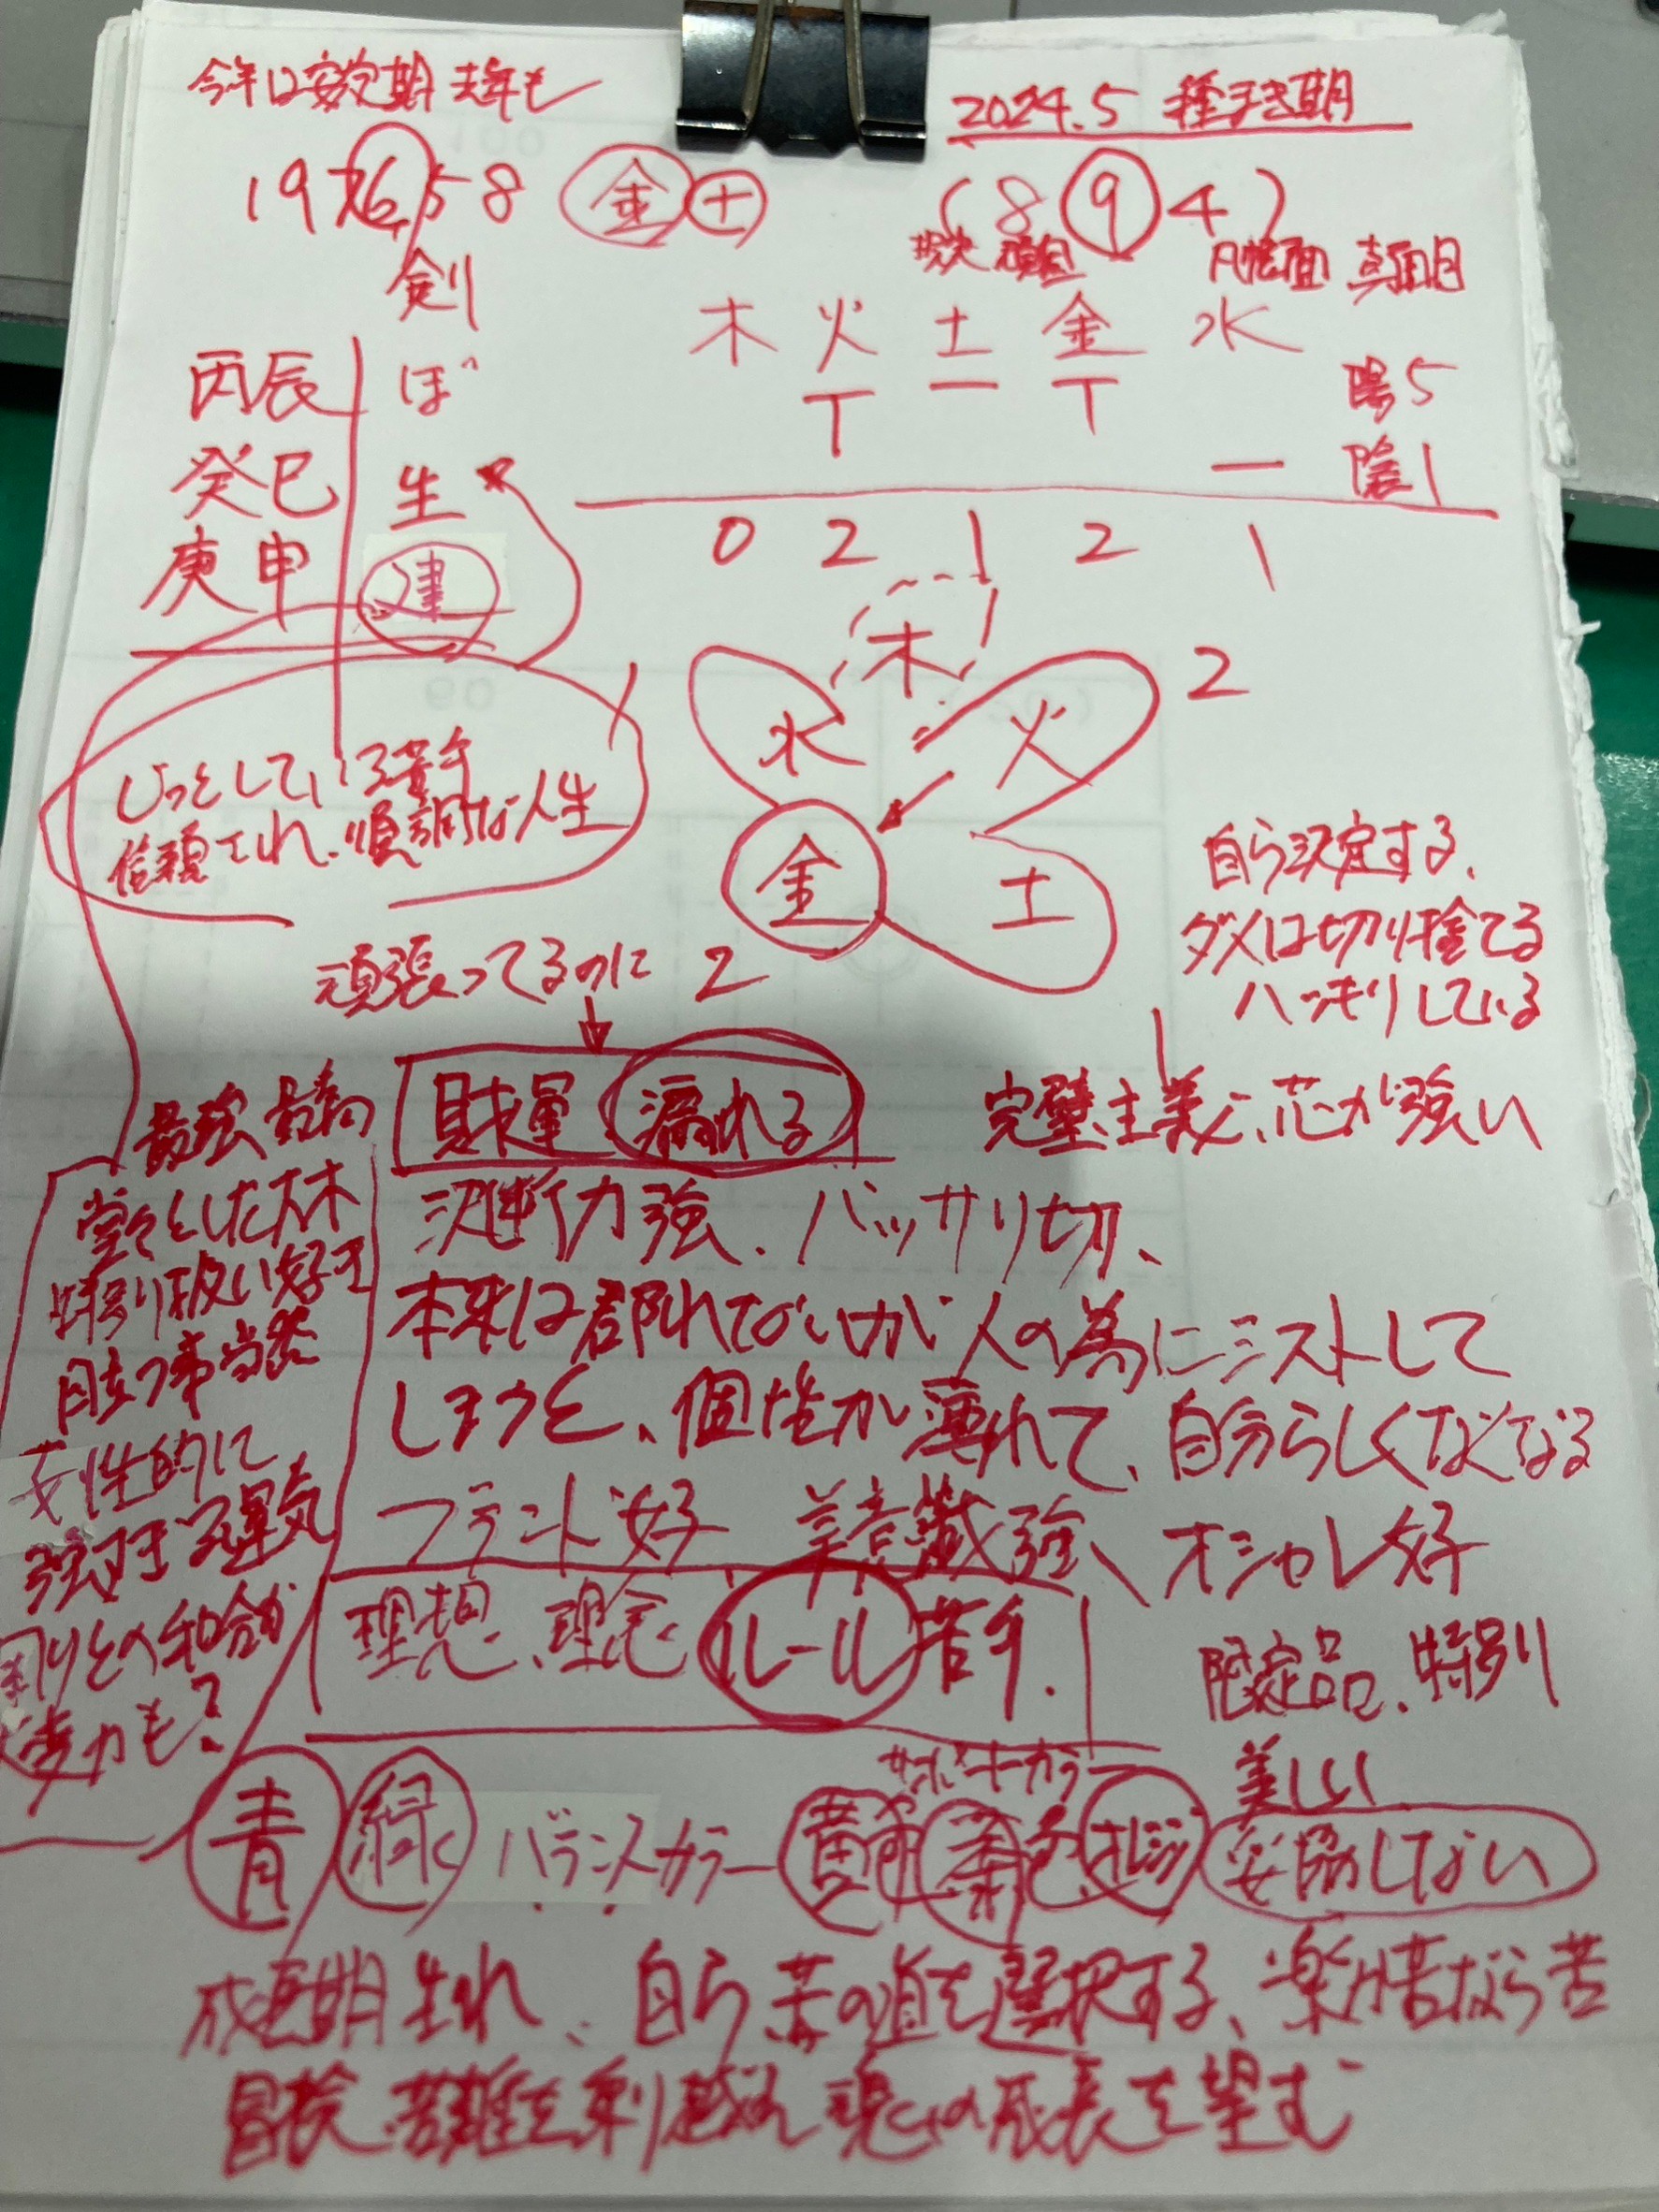 今年は安定期 去年も
2024.5 種まき期
1976 5 8 金 土
(8 9 4)
頑固 几帳面 真面目
剣
木 火 土 金 水
丙辰 ぼ
癸巳 生
庚申 建
陽5
陰1
0 2 1 2 1
木
水 火 2
金 土
じっとしている苦手
信頼され、順調な人生
自ら決定する、
ダメは切り捨てる
ハッキリしている
頑張ってるのに 2
財運 漏れる
完璧主義、芯が強い
最強 最高
堂々とした大木
特別扱い好き
目立つ事当然
女性的に
強すぎる運気
周りとの和合が
大事かも?
決断力強、バッサリ切、
本来は群れないが人の為にミストして
しまうと、個性が薄れて、自分らしくなくなる
ブランド好 美意識強、オシャレ好
理想、理念 ルール苦手.
限定品、特別
美しい
妥協しない
サポートカラー
青 緑 バランスカラー 黄色 茶色 オレンジ
成長期生れ、自ら苦の道を選択する、楽か苦なら苦
冒険、苦難を乗り越え 魂の成長を望む